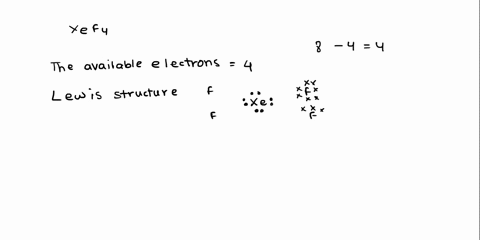 XeF4
8 - 4 = 4
The available electrons = 4
Lewis structure F Xe F
F F